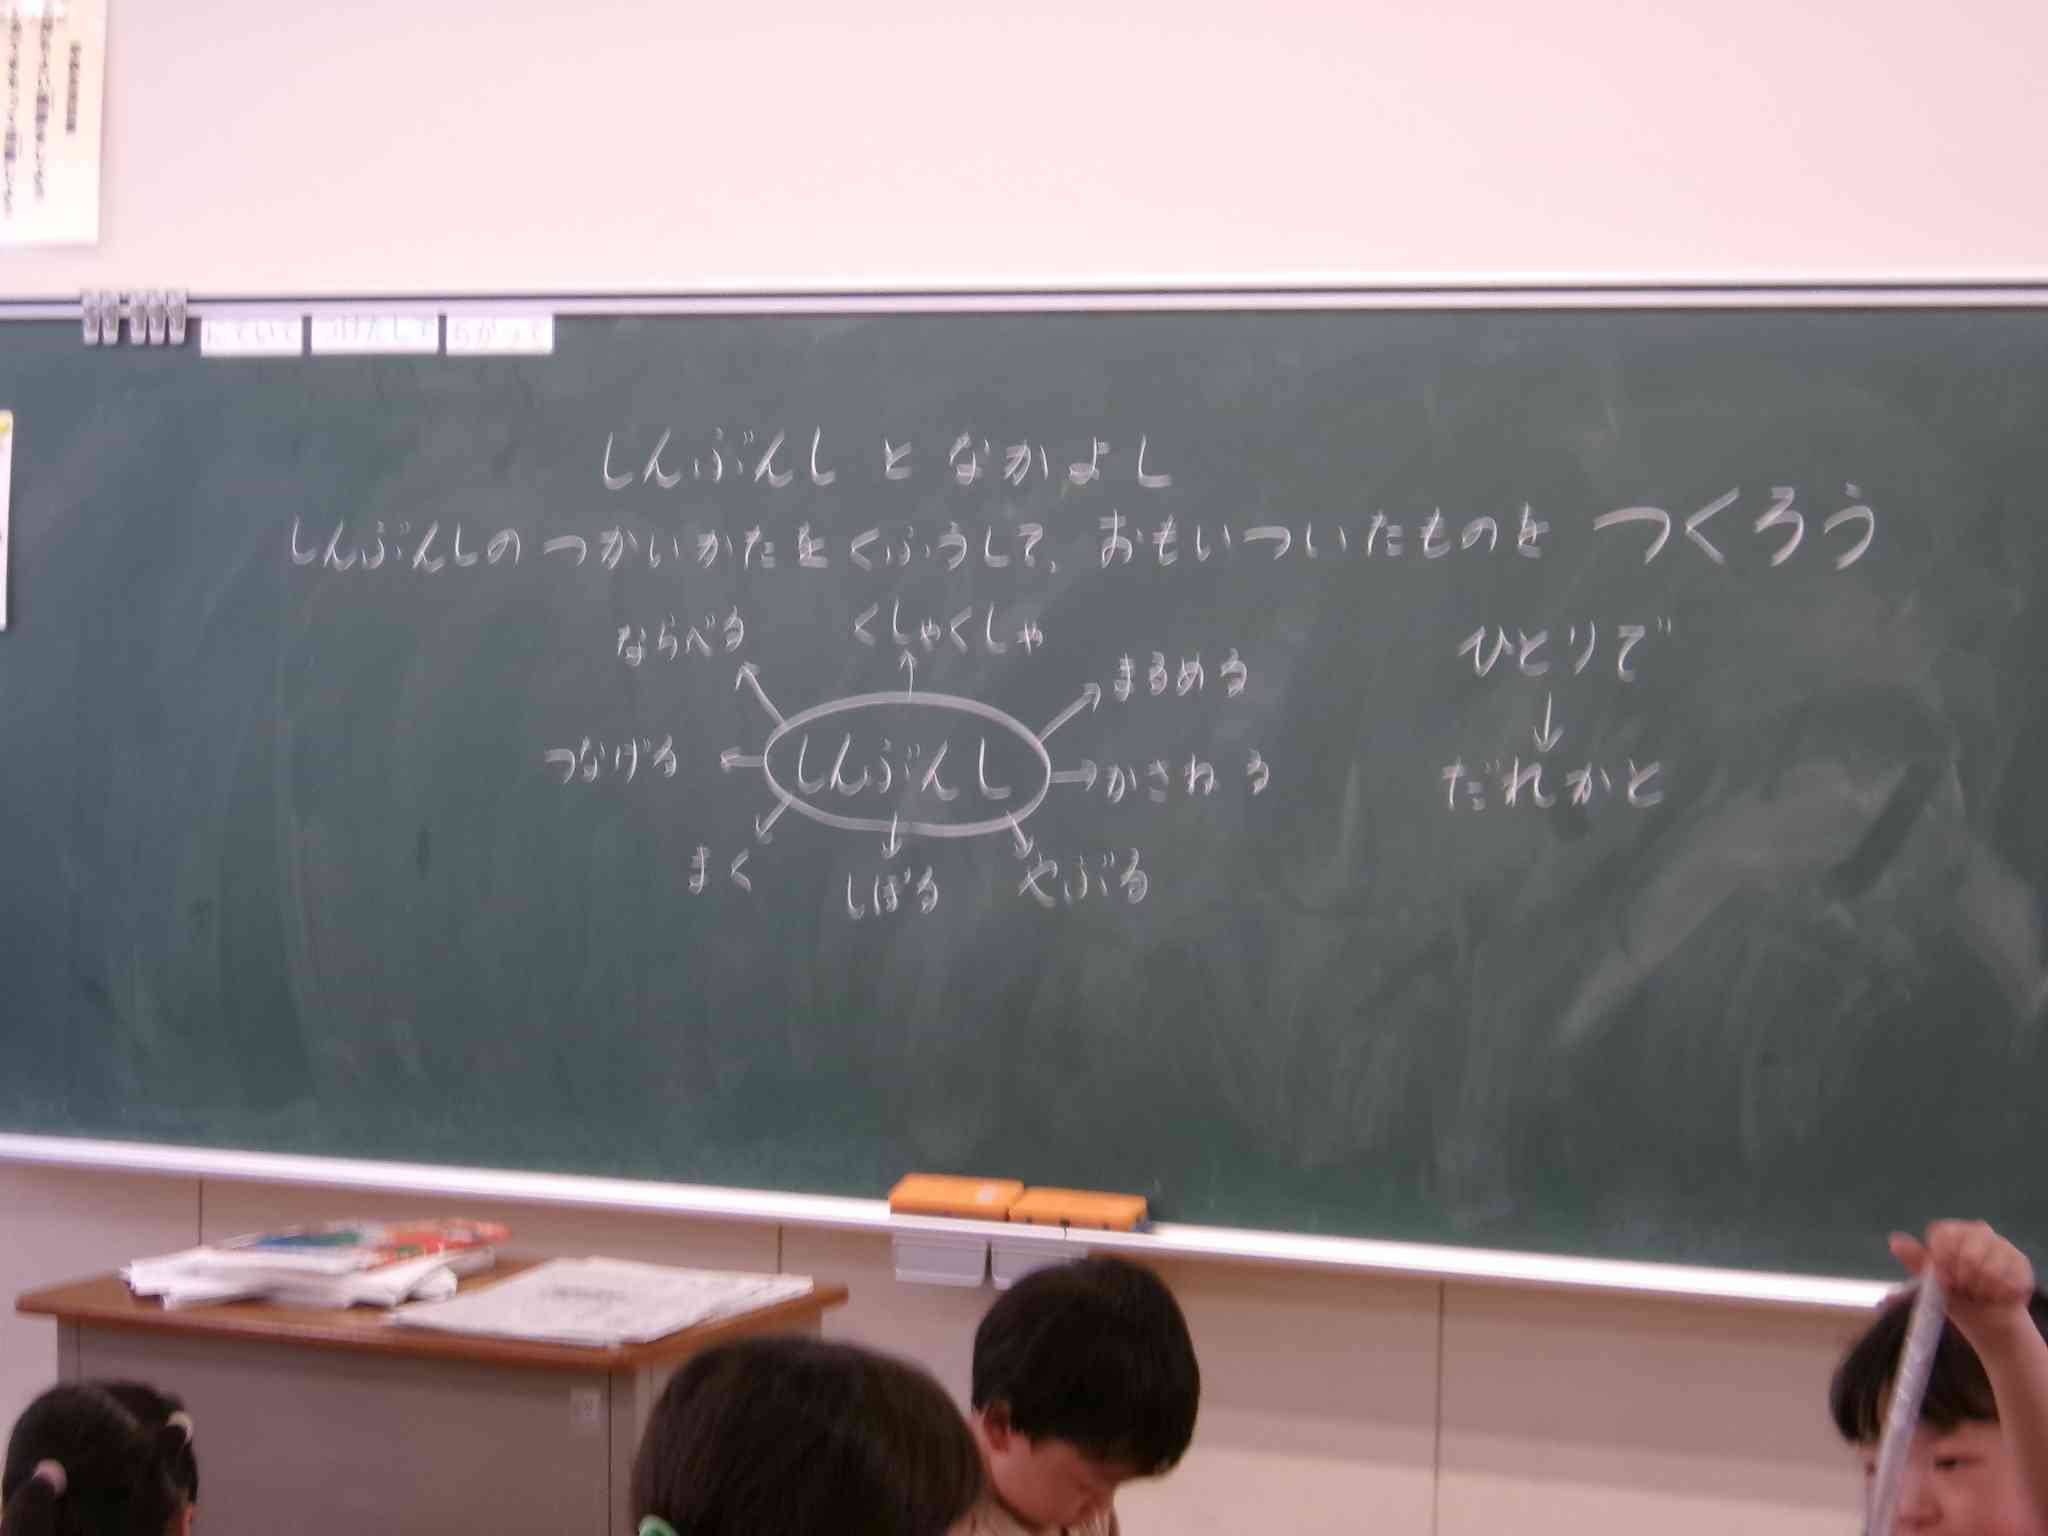 しんぶんし と なかよし
しんぶんしの つかいかたを くふうして、 おもいついたものを つくろう
ならべる
くしゃくしゃ
まるめる
つなげる
しんぶんし
かさねる
まく
しばる
やぶる
ひとりで
↓
だれかと